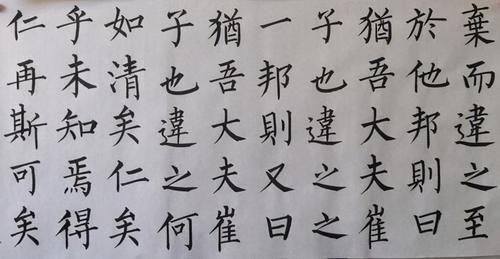 棄而違之至
於他邦則曰
猶吾大夫崔
子也違之之
一邦則又曰
猶吾大夫崔
子也違之何
如清矣仁矣
乎未知焉得
仁再斯可矣